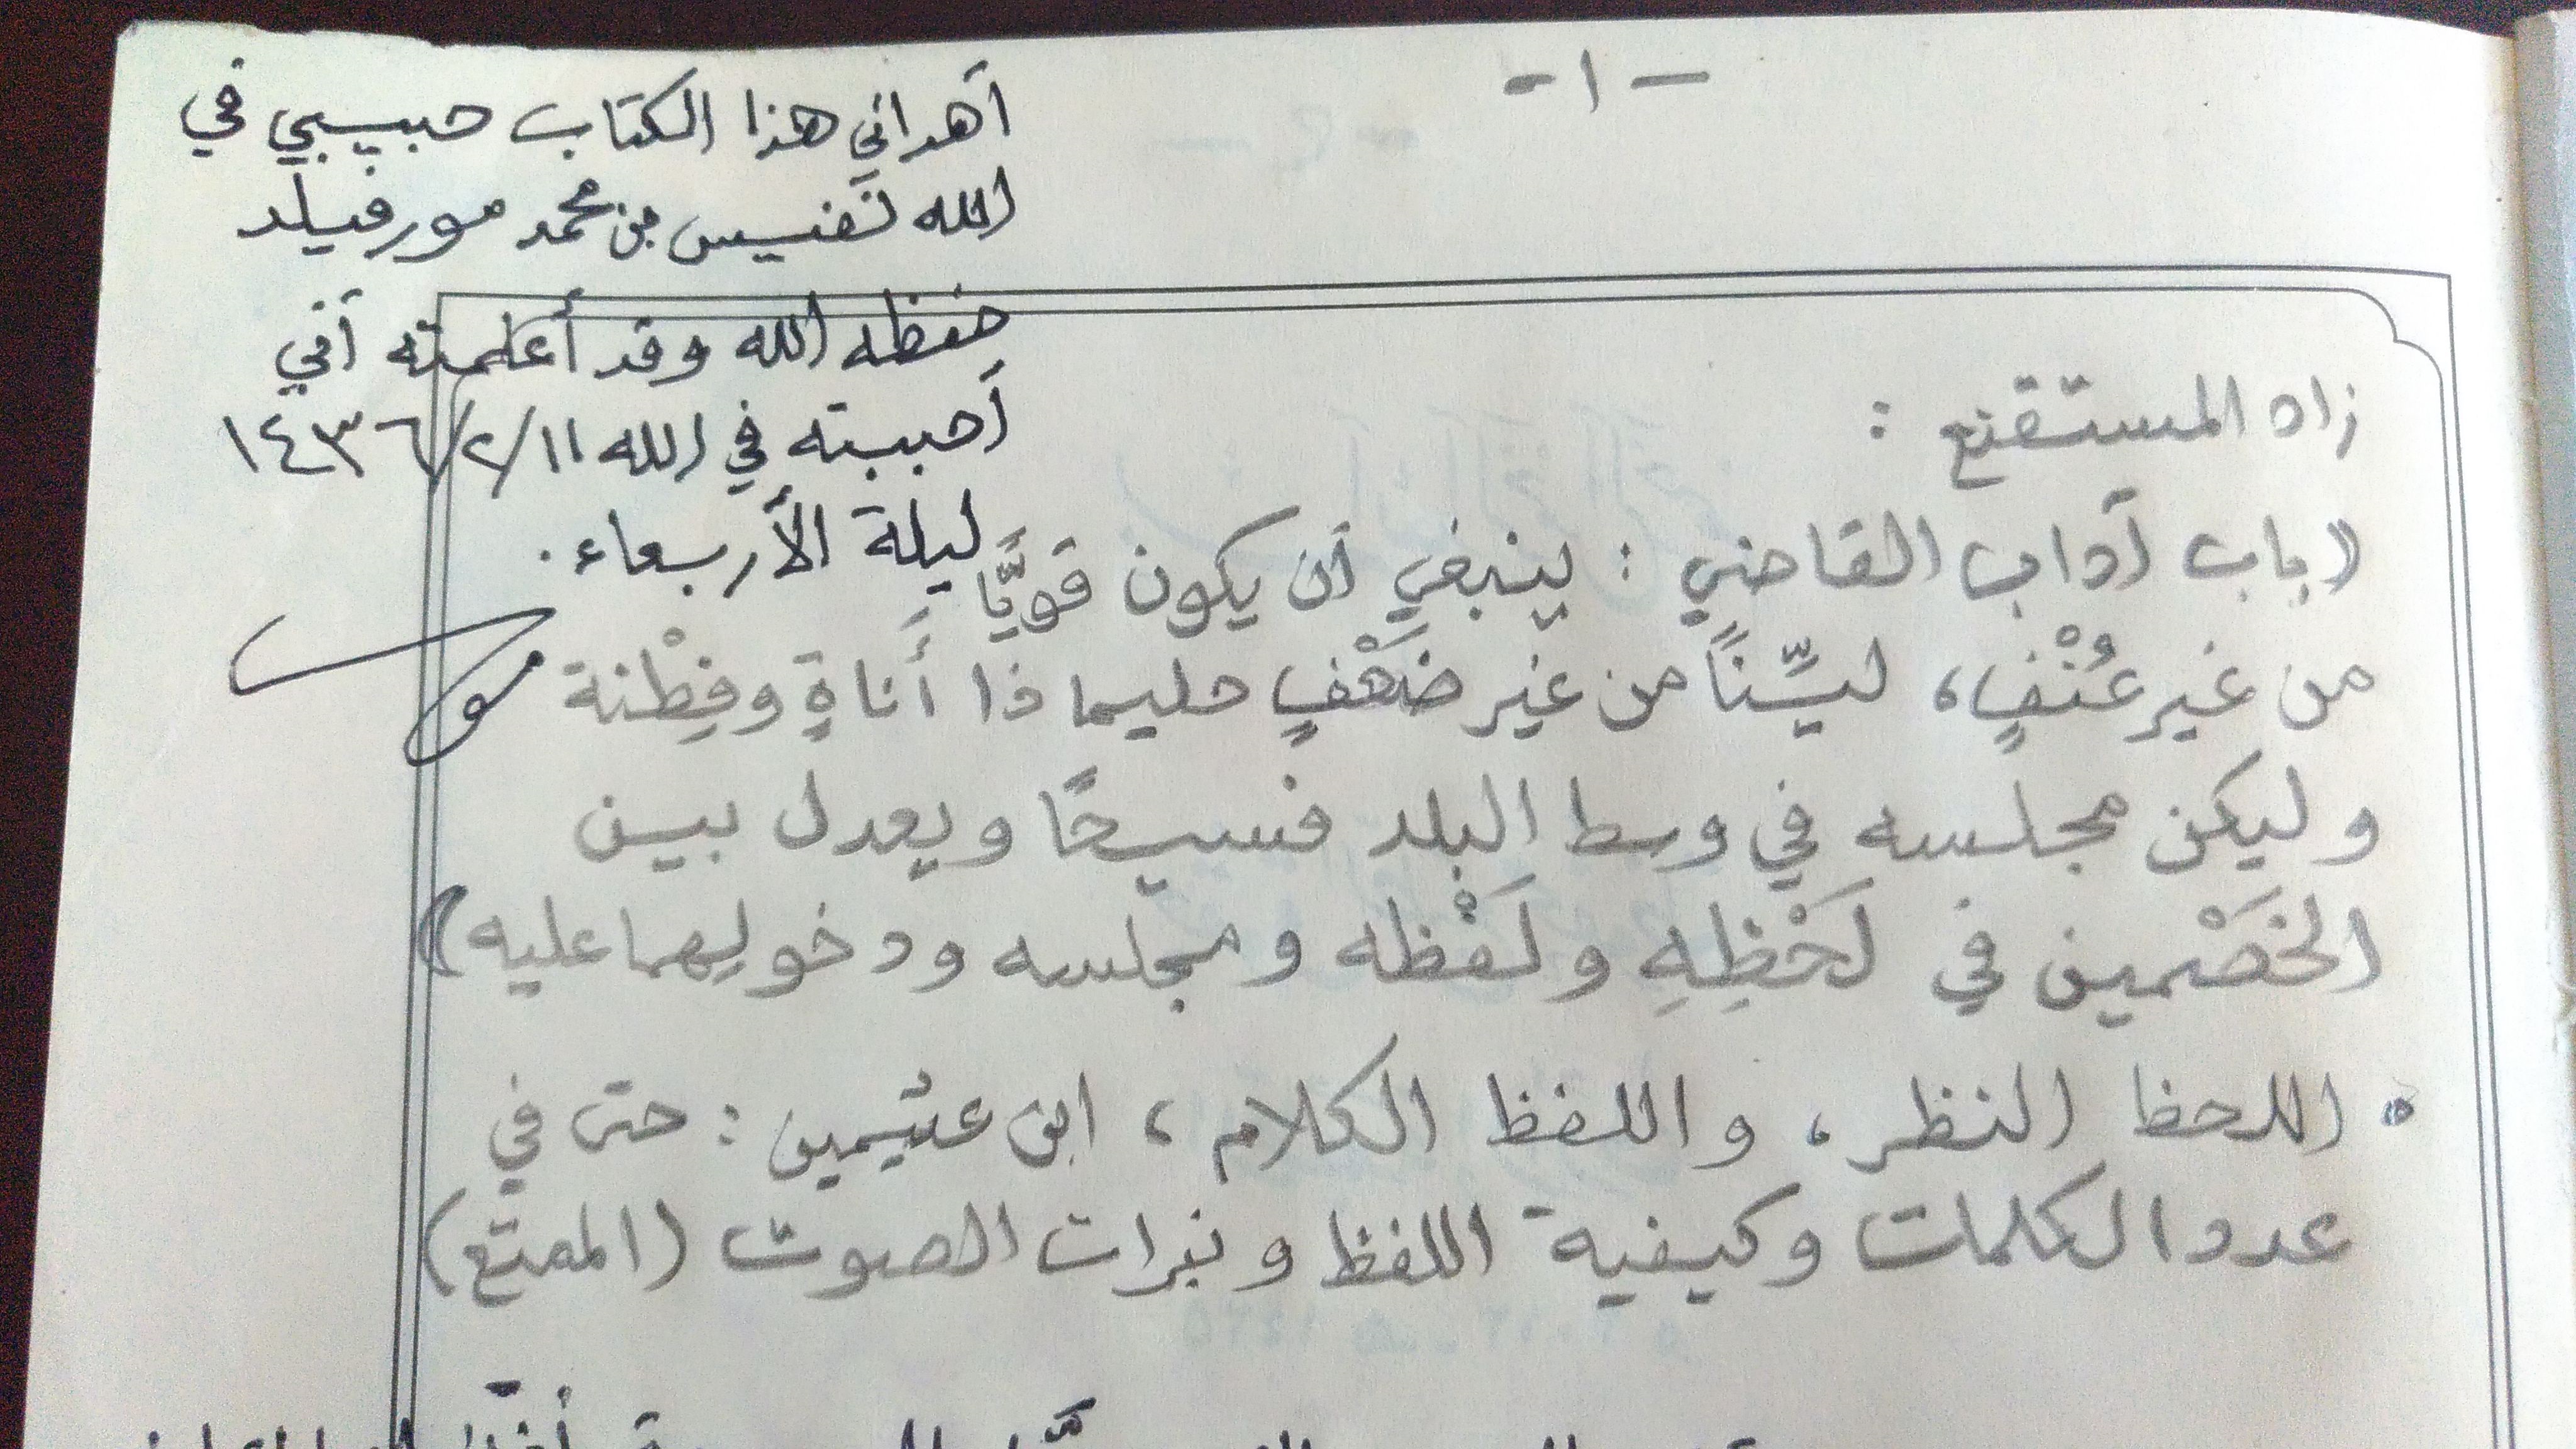 -١-
أهداني هذا الكتاب حبيبي في
الله نفيس بن محمد مورفيلد
حفظه الله وقد أعلمته أني
أحببته في الله ١٤٣٦/٢/١١
ليلة الأربعاء.
زاد المستقنع :
((باب آداب القاضي : ينبغي أن يكون قويًّا
من غير عُنْفٍ، ليِّنًا من غير ضَعْفٍ حليما ذا أَناةٍ وفِطْنة
وليكن مجلسه في وسط البلد فسيحًا ويعدل بين
الخَصْمين في لَحْظِهِ ولَفْظه ومجلسه ودخولِهما عليه))
• اللحظ النظر، واللفظ الكلام، ابن عثيمين : حتى في
عدد الكلمات وكيفية اللفظ ونبرات الصوت (الممتع)